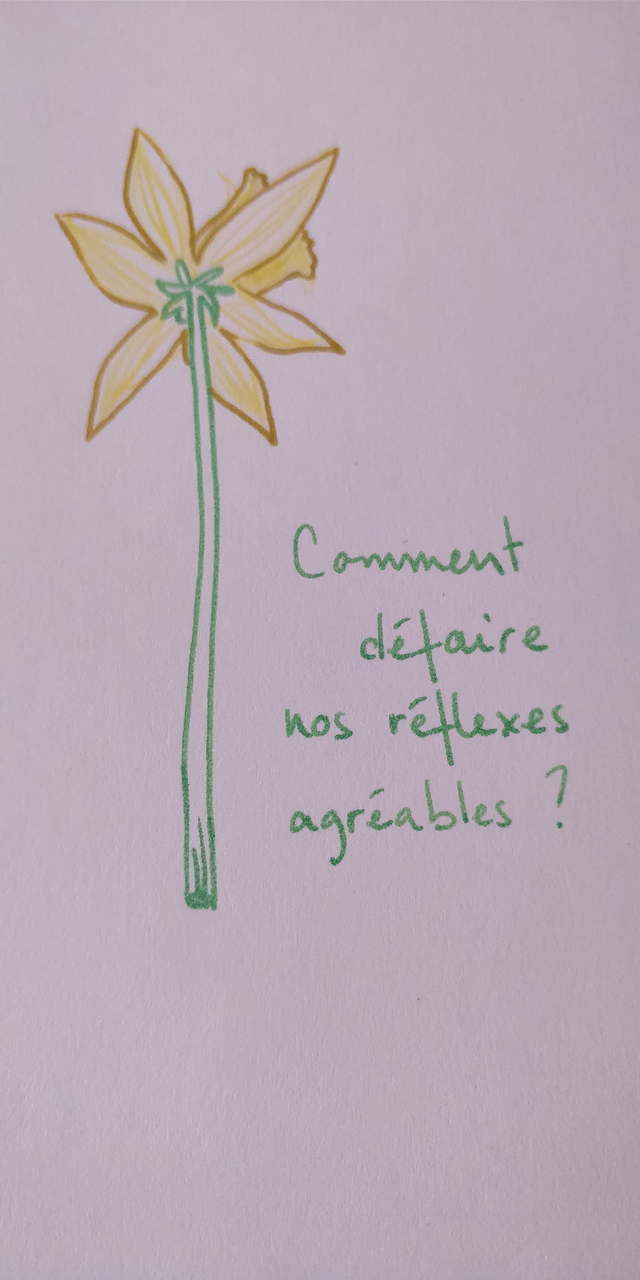 Comment
défaire
nos réflexes
agréables ?